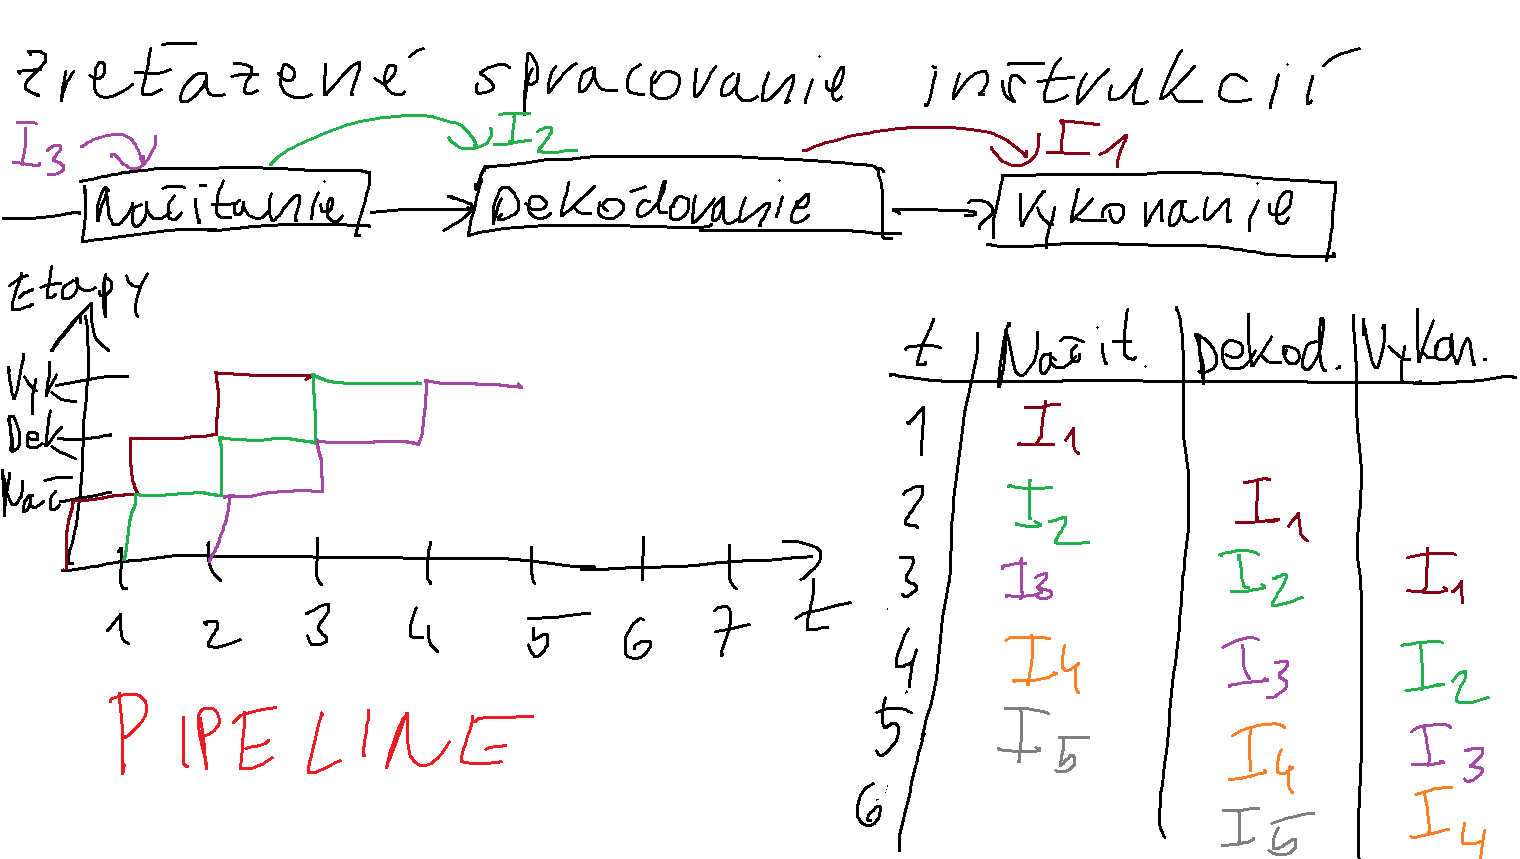 zreťazené spracovanie inštrukcií
I3 I2 I1
Načítanie Dekódovanie Vykonanie
Etapy
Vyk
Dek
Nač
1 2 3 4 5 6 7 t
PIPELINE
t Načít. Dekod. Vykon.
1 I1
2 I2 I1
3 I3 I2 I1
4 I4 I3 I2
5 I5 I4 I3
6 I5 I4